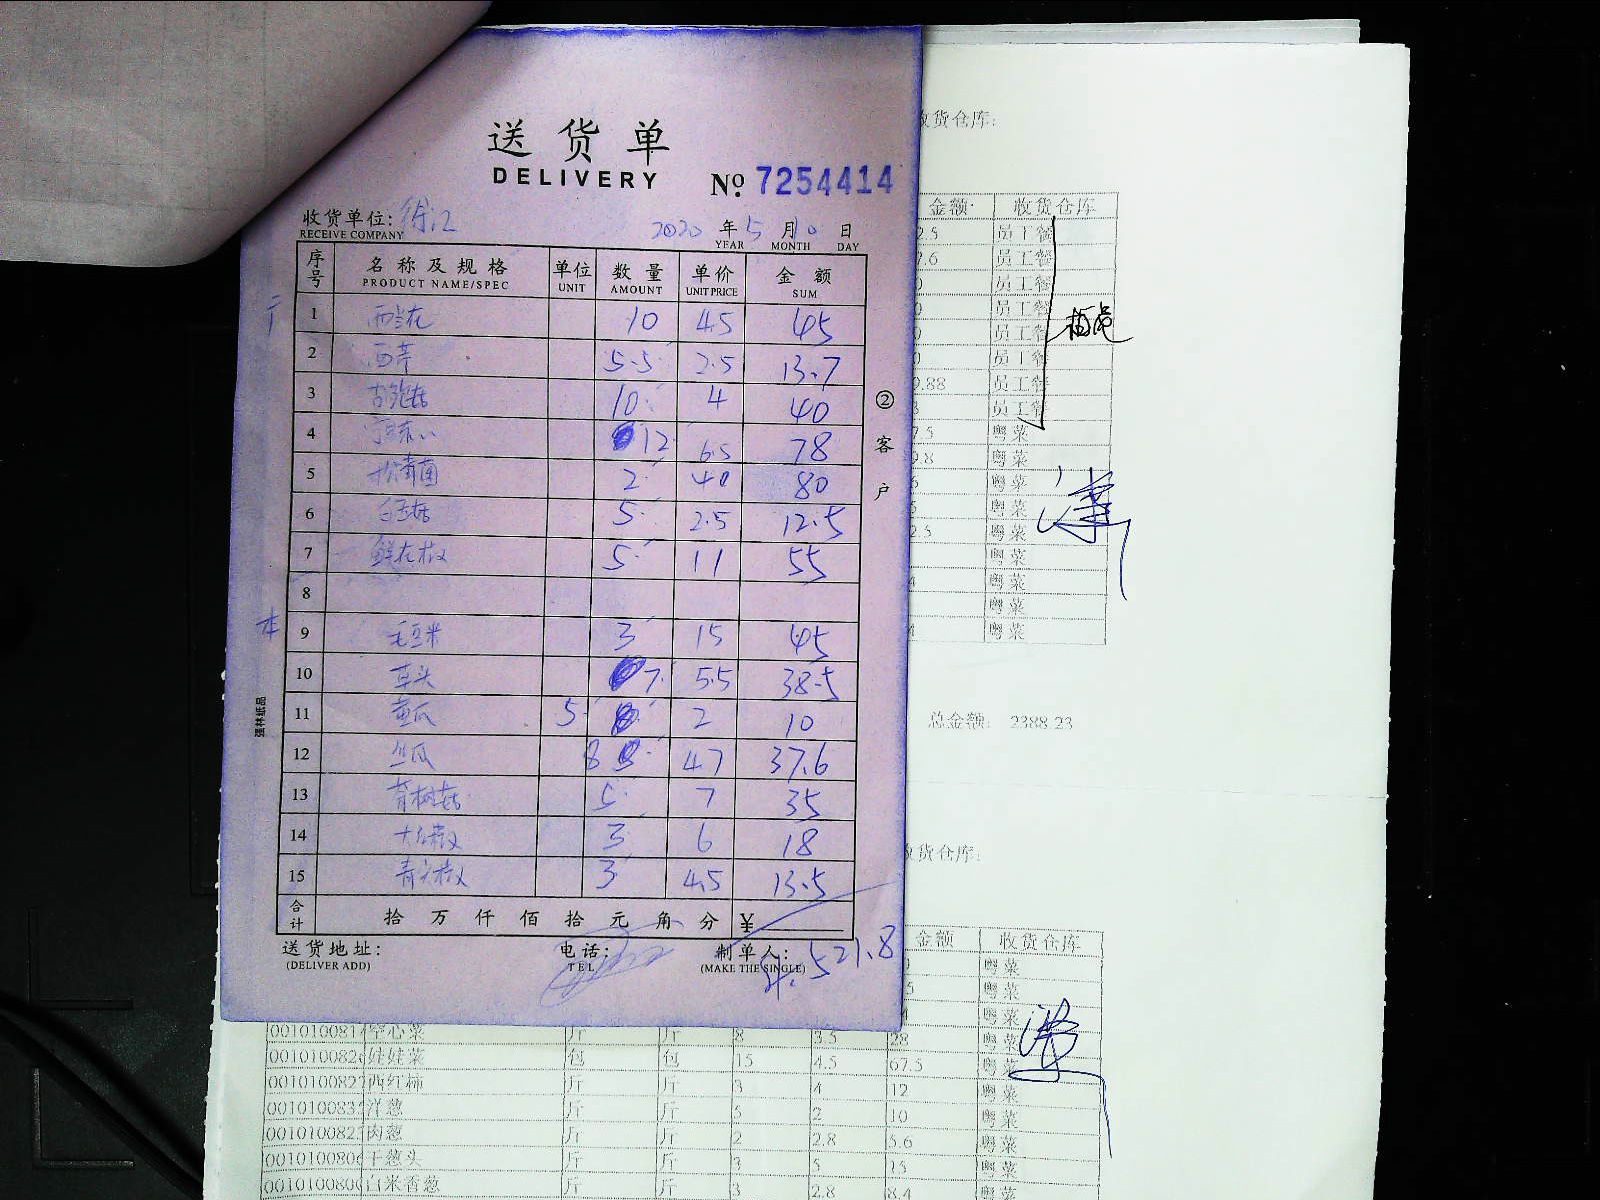 送货单
DELIVERY № 7254414
收货单位: 徐汇 2020 年 5 月 10 日
RECEIVE COMPANY YEAR MONTH DAY
序号 名称及规格 单位 数量 单价 金额
PRODUCT NAME/SPEC UNIT AMOUNT UNIT PRICE SUM
1 西兰花 10 4.5 45
2 西芹 5.5 2.5 13.7
3 10 4 40
4 12 6.5 78
5 2 40 80
6 白玉菇 5 2.5 12.5
7 鲜花椒 5 11 55
8
本
9 毛豆米 3 15 45
10 草头 7 5.5 38.5
11 黄瓜 5 2 10
12 丝瓜 8 4.7 37.6
13 5 7 35
14 3 6 18
15 3 4.5 13.5
合计 拾 万 仟 佰 拾 元 角 分 ¥
送货地址: 电话: 制单人:
(DELIVER ADD) TEL (MAKE THE SINGLE)
521.8
②客户
强林纸品
收货仓库:
金额 收货仓库
2.5 员工餐
7.6 员工餐
员工餐
员工餐
员工餐
员工餐
9.88 员工餐
员工餐
7.5 粤菜
9.8 粤菜
粤菜
粤菜
2.5 粤菜
粤菜
粤菜
粤菜
粤菜
总金额: 2388.23
收货仓库:
金额 收货仓库
粤菜
粤菜
粤菜
空心菜 斤 斤 8 3.5 28 粤菜
娃娃菜 包 包 15 4.5 67.5 粤菜
西红柿 斤 斤 3 4 12 粤菜
洋葱 斤 斤 5 2 10 粤菜
肉葱 斤 斤 2 2.8 5.6 粤菜
干葱头 斤 斤 3 5 15 粤菜
白米香葱 斤 斤 3 2.8 8.4 粤菜